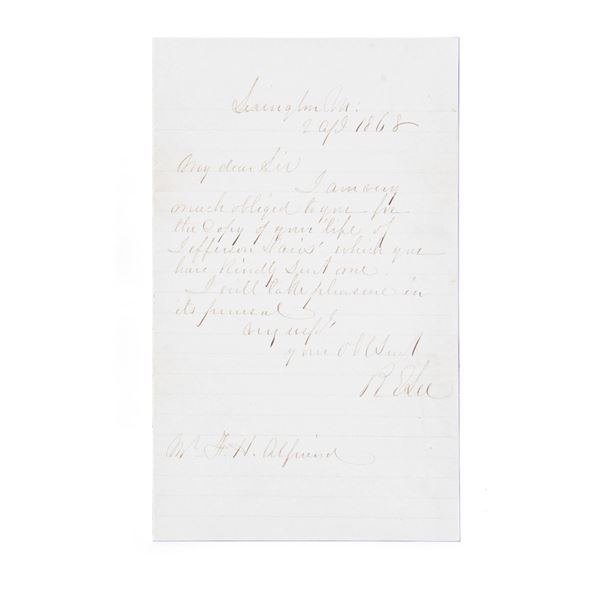 Lexington Va:
2 Apl 1868
My dear Sir
I am very
much obliged to you for
the Copy of your 'life of
Jefferson Davis' which you
have kindly sent me.
I will take pleasure in
its perusal
Very respy
your obt Servt
R E Lee
Mr. F. H. Alfriend